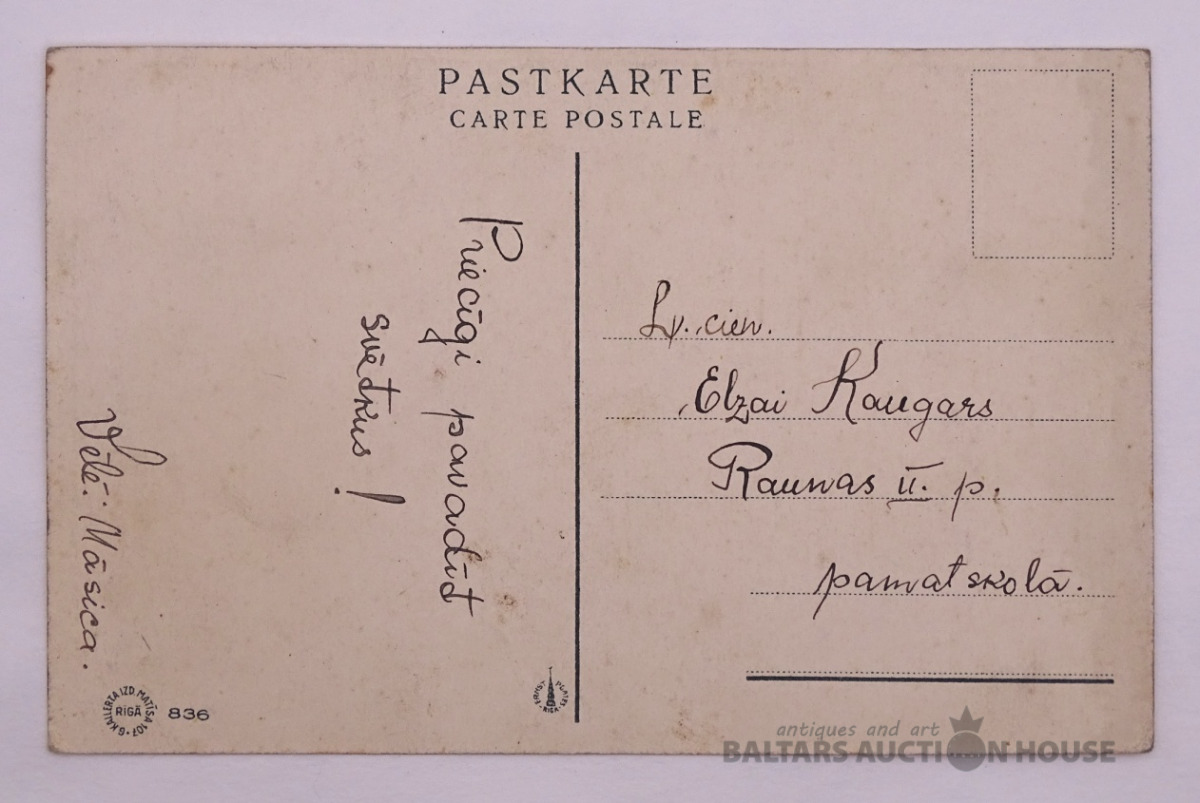 PASTKARTE
CARTE POSTALE
Priecīgi pavadīt
svētkus!
Vēlē. Māsica.
Lv. cien.
Elzai Kaugars
Raunas II. p.
pamatskolā.
G. KALLERTA IZD. MATĪSA 107
RĪGĀ
836
ERNST PLATES
RIGA
antiques and art
BALTARS AUCTION HOUSE